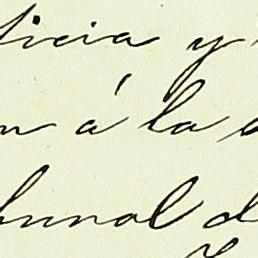 ticia y
n á la
bunal d